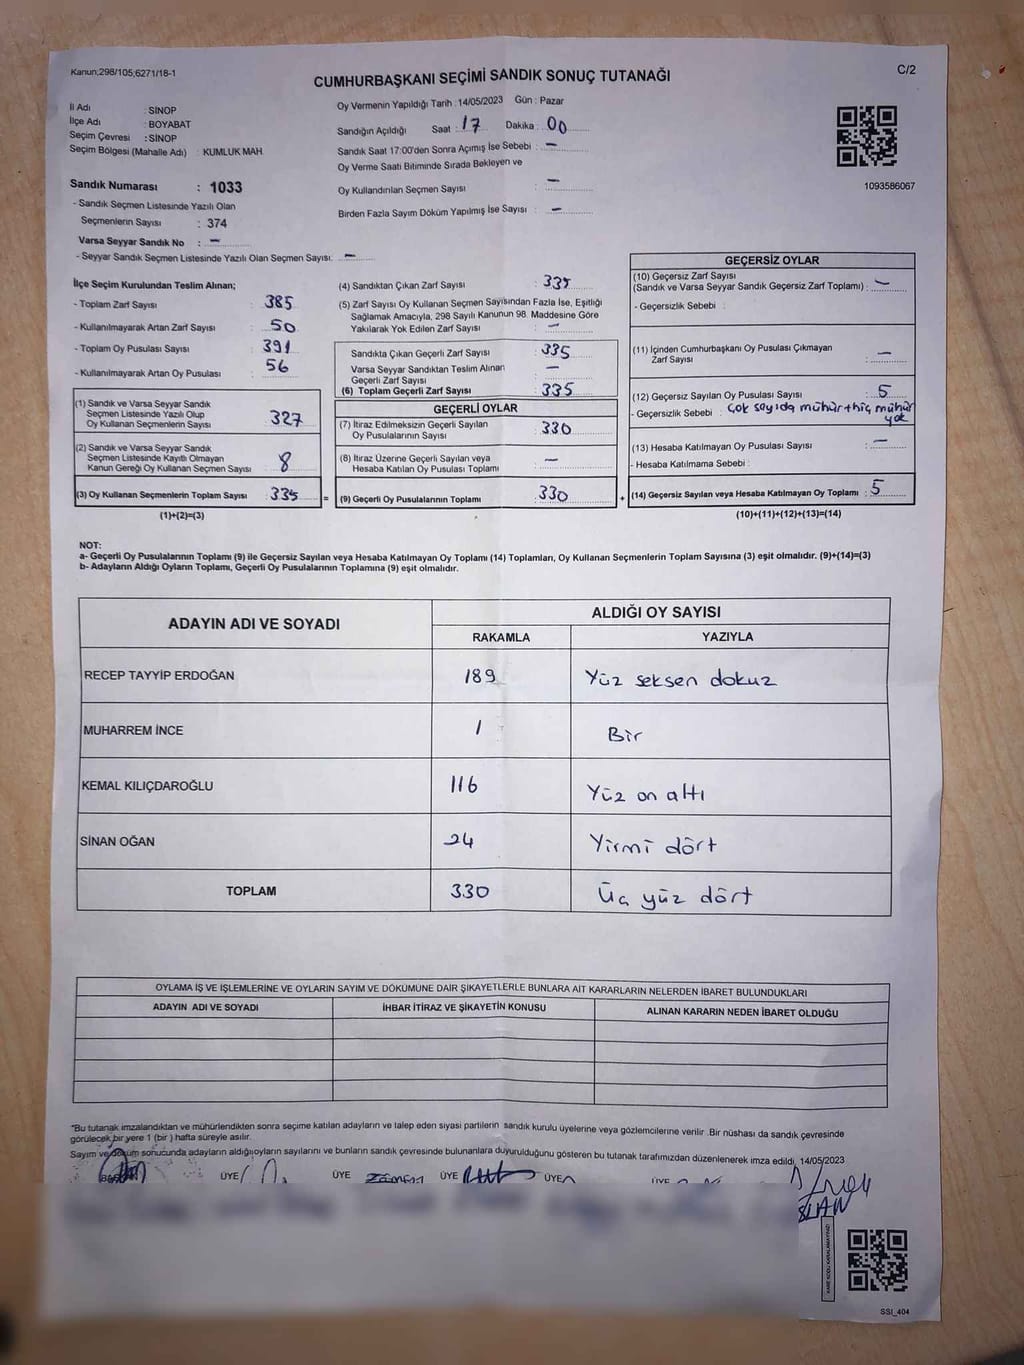 Kanun;298/105;6271/18-1
C/2
CUMHURBAŞKANI SEÇİMİ SANDIK SONUÇ TUTANAĞI
İl Adı : SİNOP
İlçe Adı : BOYABAT
Seçim Çevresi : SİNOP
Seçim Bölgesi (Mahalle Adı) : KUMLUK MAH.
Sandık Numarası : 1033
- Sandık Seçmen Listesinde Yazılı Olan
Seçmenlerin Sayısı : 374
Varsa Seyyar Sandık No : -
- Seyyar Sandık Seçmen Listesinde Yazılı Olan Seçmen Sayısı: -
Oy Vermenin Yapıldığı Tarih : 14/05/2023 Gün : Pazar
Sandığın Açıldığı Saat : 17 Dakika : 00
Sandık Saat 17:00'den Sonra Açımış İse Sebebi : -
Oy Verme Saati Bitiminde Sırada Bekleyen ve
Oy Kullandırılan Seçmen Sayısı : -
Birden Fazla Sayım Döküm Yapılmış İse Sayısı : -
1093586067
İlçe Seçim Kurulundan Teslim Alınan;
- Toplam Zarf Sayısı : 385
- Kullanılmayarak Artan Zarf Sayısı : 50
- Toplam Oy Pusulası Sayısı : 391
- Kullanılmayarak Artan Oy Pusulası : 56
(1) Sandık ve Varsa Seyyar Sandık
Seçmen Listesinde Yazılı Olup
Oy Kullanan Seçmenlerin Sayısı : 327
(2) Sandık ve Varsa Seyyar Sandık
Seçmen Listesinde Kayıtlı Olmayan
Kanun Gereği Oy Kullanan Seçmen Sayısı : 8
(3) Oy Kullanan Seçmenlerin Toplam Sayısı : 335 =
(1)+(2)=(3)
(4) Sandıktan Çıkan Zarf Sayısı : 335
(5) Zarf Sayısı Oy Kullanan Seçmen Sayısından Fazla İse, Eşitliği
Sağlamak Amacıyla, 298 Sayılı Kanunun 98. Maddesine Göre
Yakılarak Yok Edilen Zarf Sayısı : -
Sandıkta Çıkan Geçerli Zarf Sayısı : 335
Varsa Seyyar Sandıktan Teslim Alınan
Geçerli Zarf Sayısı : -
(6) Toplam Geçerli Zarf Sayısı : 335
GEÇERLİ OYLAR
(7) İtiraz Edilmeksizin Geçerli Sayılan
Oy Pusulasının Sayısı : 330
(8) İtiraz Üzerine Geçerli Sayılan veya
Hesaba Katılan Oy Pusulası Toplamı : -
(9) Geçerli Oy Pusulalarının Toplamı : 330 +
GEÇERSİZ OYLAR
(10) Geçersiz Zarf Sayısı
(Sandık ve Varsa Seyyar Sandık Geçersiz Zarf Toplamı) : -
- Geçersizlik Sebebi :
(11) İçinden Cumhurbaşkanı Oy Pusulası Çıkmayan
Zarf Sayısı : -
(12) Geçersiz Sayılan Oy Pusulası Sayısı : 5
- Geçersizlik Sebebi : Çok sayıda mühür+hiç mühür
yok
(13) Hesaba Katılmayan Oy Pusulası Sayısı : -
- Hesaba Katılmama Sebebi :
(14) Geçersiz Sayılan veya Hesaba Katılmayan Oy Toplamı : 5
(10)+(11)+(12)+(13)=(14)
NOT:
a- Geçerli Oy Pusulalarının Toplamı (9) ile Geçersiz Sayılan veya Hesaba Katılmayan Oy Toplamı (14) Toplamları, Oy Kullanan Seçmenlerin Toplam Sayısına (3) eşit olmalıdır. (9)+(14)=(3)
b- Adayların Aldığı Oyların Toplamı, Geçerli Oy Pusulalarının Toplamına (9) eşit olmalıdır.
ADAYIN ADI VE SOYADI
ALDIĞI OY SAYISI
RAKAMLA YAZIYLA
RECEP TAYYİP ERDOĞAN 189 Yüz seksen dokuz
MUHARREM İNCE 1 Bir
KEMAL KILIÇDAROĞLU 116 Yüz on altı
SİNAN OĞAN 24 Yirmi dört
TOPLAM 330 Üç yüz dört
OYLAMA İŞ VE İŞLEMLERİNE VE OYLARIN SAYIM VE DÖKÜMÜNE DAİR ŞİKAYETLERLE BUNLARA AİT KARARLARIN NELERDEN İBARET BULUNDUKLARI
ADAYIN ADI VE SOYADI İHBAR İTİRAZ VE ŞİKAYETİN KONUSU ALINAN KARARIN NEDEN İBARET OLDUĞU
"Bu tutanak imzalandıktan ve mühürlendikten sonra seçime katılan adayların ve talep eden siyasi partilerin sandık kurulu üyelerine veya gözlemcilerine verilir .Bir nüshası da sandık çevresinde
görülecek bir yere 1 (bir ) hafta süreyle asılır.
Sayım ve döküm sonucunda adayların aldığıoyların sayılarını ve bunların sandık çevresinde bulunanlara duyurulduğunu gösteren bu tutanak tarafımızdan düzenlenerek imza edildi. 14/05/2023
ÜYE ÜYE ÜYE ÜYE ÜYE
SSI_404